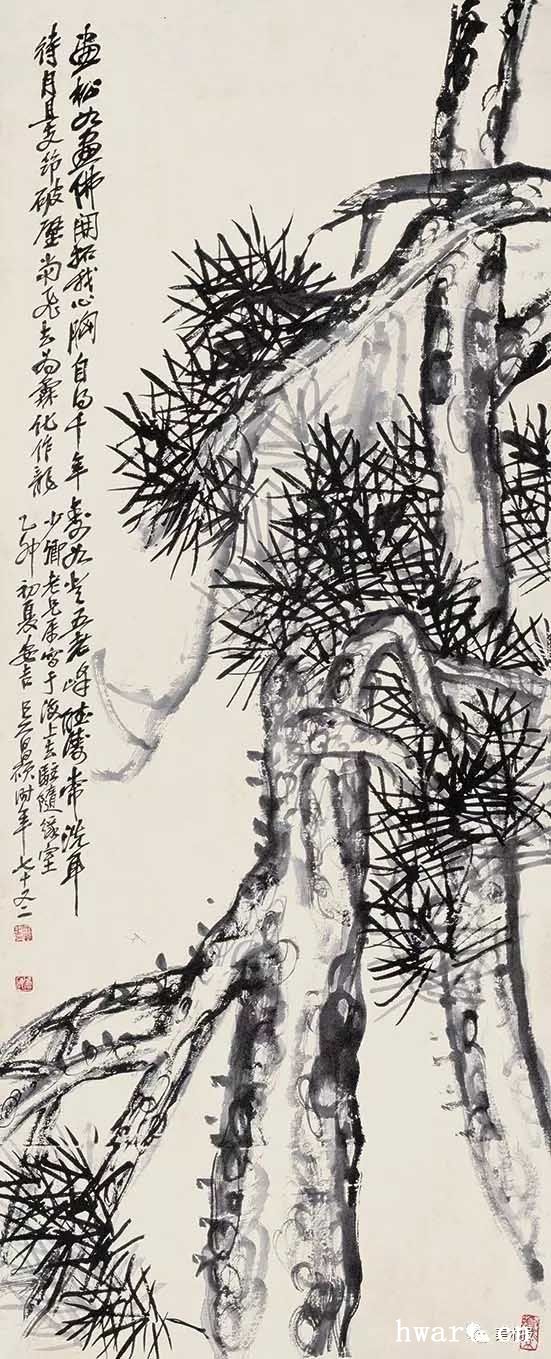 畫松如畫佛開拓我心胸自得千年壽如登五老峰聽濤常洗耳
待月且支笻破壁當飛去為霖化作龍
少卿老兄屬寫于海上去駐隨緣室
乙卯初夏安吉吳昌碩時年七十又二